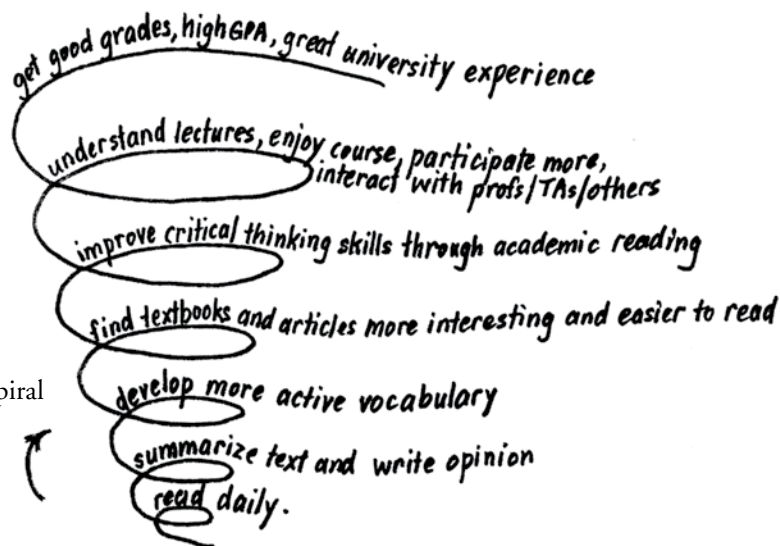 get good grades, high GPA, great university experience
understand lectures, enjoy course, participate more,
interact with profs/TAs/others
improve critical thinking skills through academic reading
find textbooks and articles more interesting and easier to read
piral
develop more active vocabulary
summarize text and write opinion
read daily.